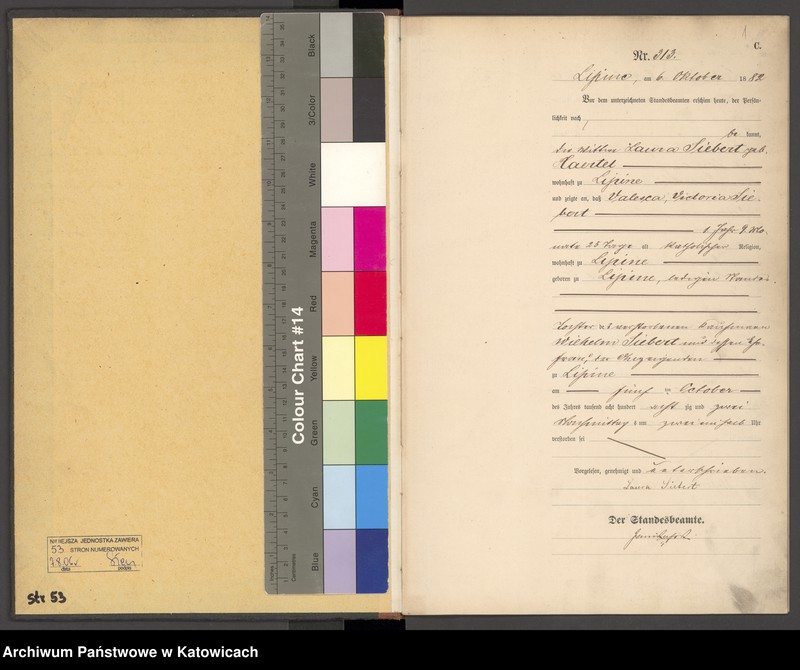 NINIEJSZA JEDNOSTKA ZAWIERA
53 STRON NUMEROWANYCH
data
podpis
str 53
Colour Chart #14
Black
3/Color
White
Magenta
Red
Yellow
Green
Cyan
Blue
Inches
Centimetres
1
C.
Nr. 313.
Lipine, am 6. Oktober 1882
Vor dem unterzeichneten Standesbeamten erschien heute, der Persön-
lichkeit nach
be kannt,
die Wittwe Laura Siebert geb.
Haertel
wohnhaft zu Lipine
und zeigte an, daß Valesca, Victoria Sie-
bert
1 Jahr 9 Mo-
nate 25 Tage alt katholischer Religion,
wohnhaft zu Lipine
geboren zu Lipine, ledigen Standes
Tochter des verstorbenen Kaufmann
Wilhelm Siebert und dessen Ehe-
frau, der Anzeigenden
zu Lipine
am fünf ten October
des Jahres tausend acht hundert acht zig und zwei
Nachmittag s um zwei ein halb Uhr
verstorben sei
Vorgelesen, genehmigt und unterschrieben.
Laura Siebert
Der Standesbeamte.
Archiwum Państwowe w Katowicach